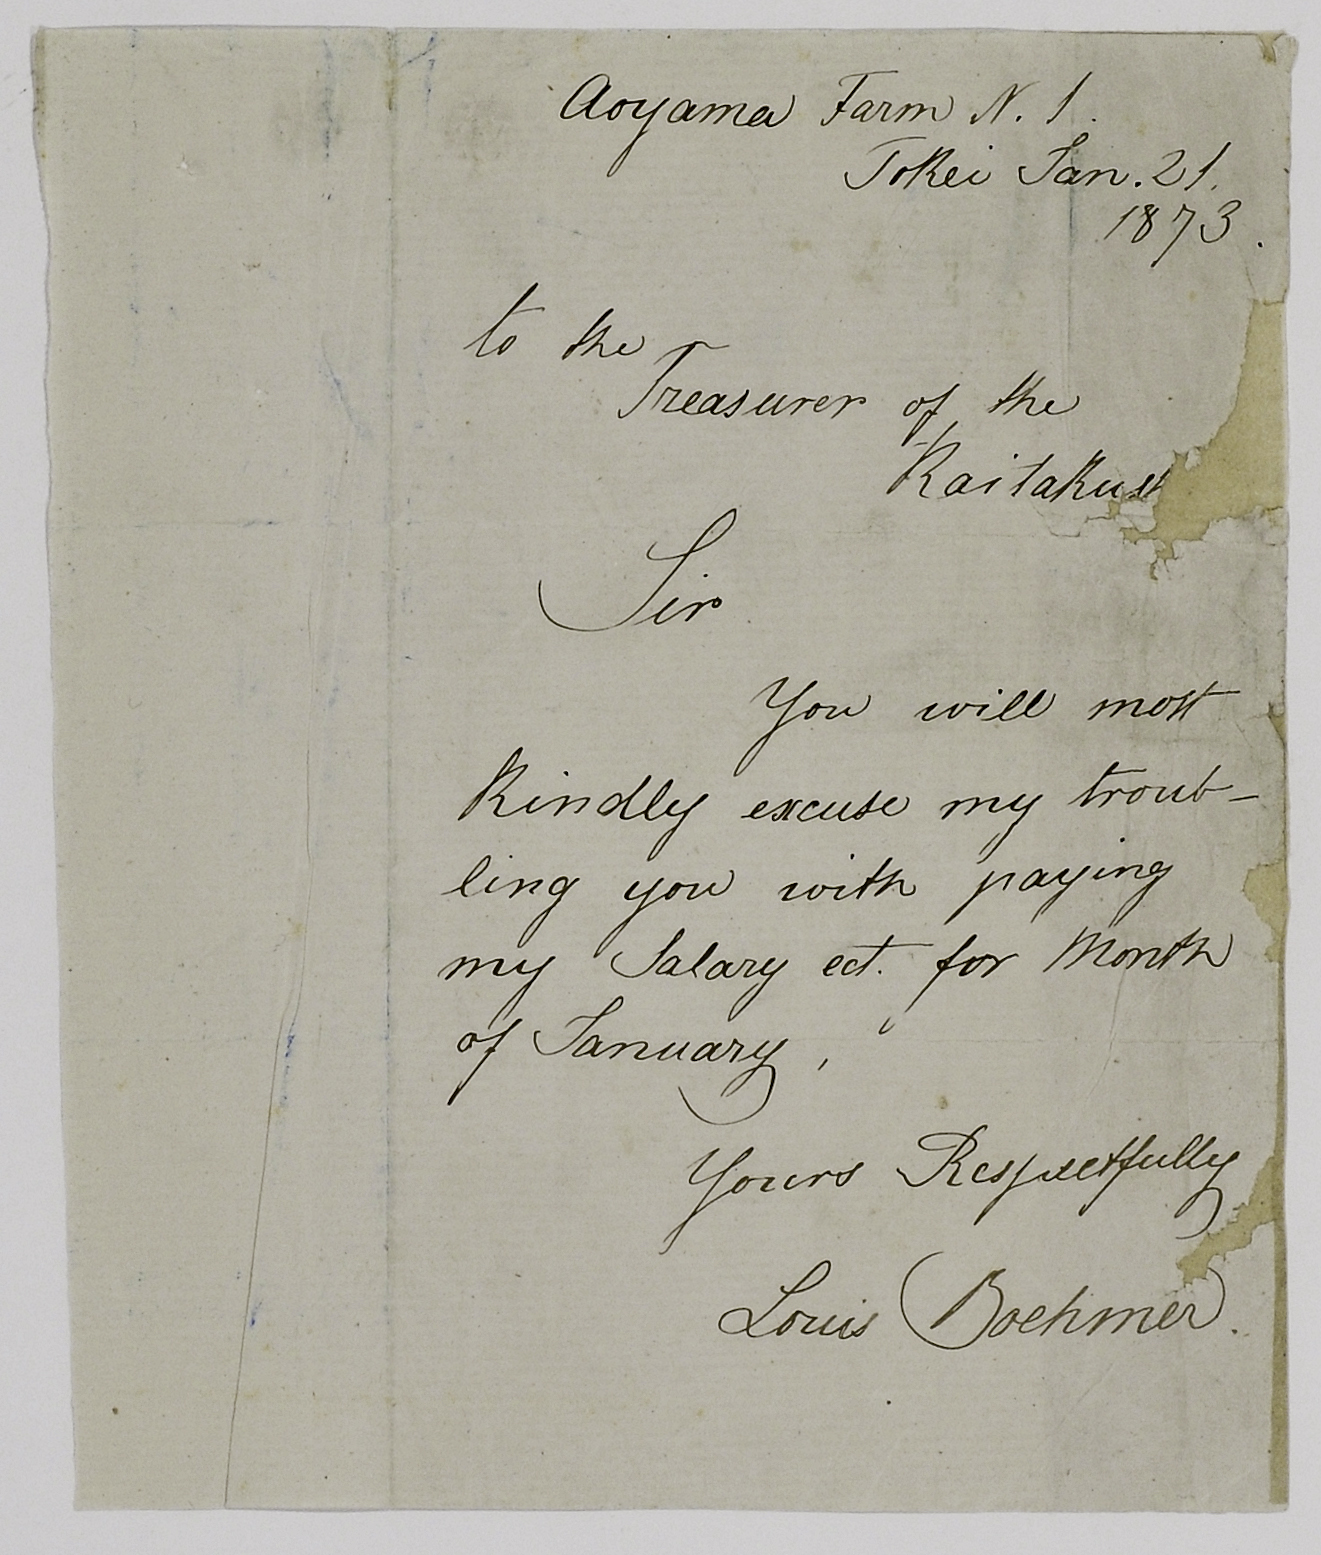 Aoyama Farm N. 1.
Tokei Jan. 21.
1873.
to the
Treasurer of the
Kaitakush
Sir
You will most
kindly excuse my troub-
ling you with paying
my Salary ect. for Month
of January,
Yours Respectfully
Louis Boehmer.